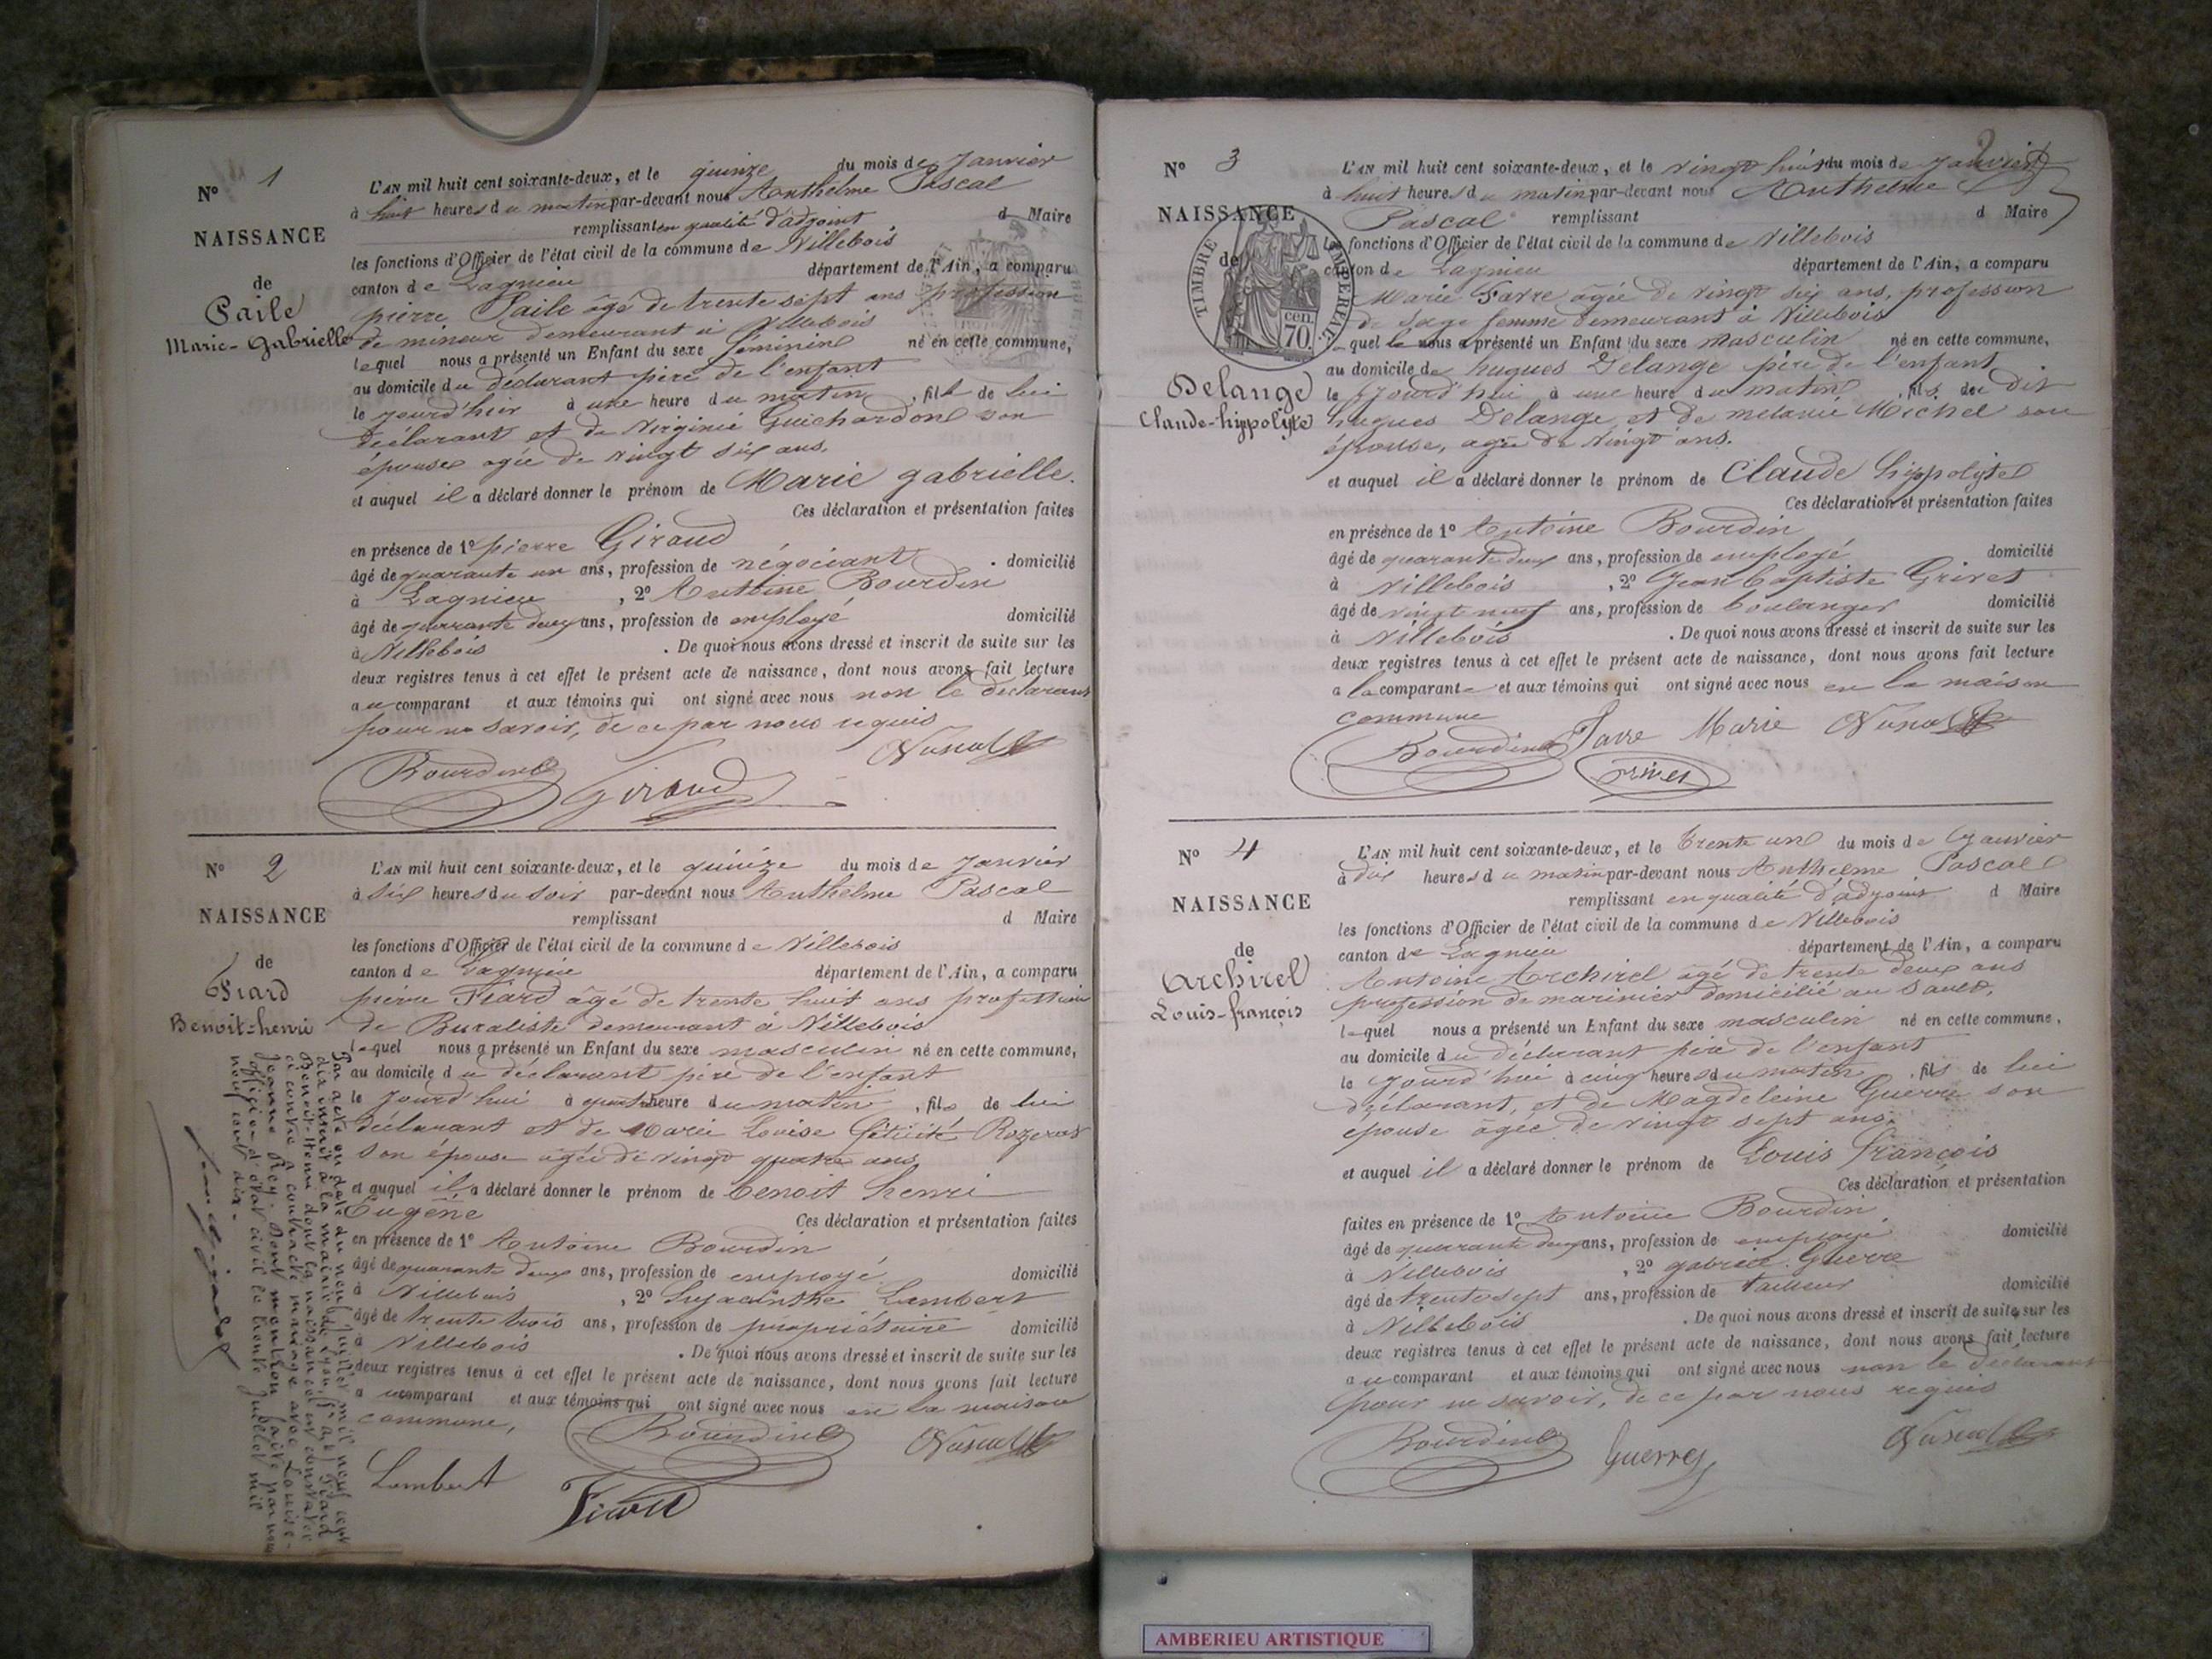 N° 1
NAISSANCE
de
Paile
Marie-Gabrielle
L'AN mil huit cent soixante-deux, et le quinze du mois de Janvier
à huit heures du matin par-devant nous Anthelme Pascal
remplissant en qualité d'adjoint d Maire
les fonctions d'Officier de l'état civil de la commune de Villebois
canton de Lagnieu département de l'Ain, a comparu
pierre Paile âgé de trente sept ans profession
de mineur demeurant à Villebois
lequel nous a présenté un Enfant du sexe féminin né en cette commune,
au domicile du déclarant père de l'enfant
le jourd'hui à une heure du matin, fille de lui
déclarant et de Virginie Guichardon son
épouse agée de vingt six ans.
et auquel il a déclaré donner le prénom de Marie gabrielle.
Ces déclaration et présentation faites
en présence de 1° pierre Giraud
âgé de quarante un ans, profession de négociant. domicilié
à Lagnieu, 2° Antoine Bourdin
âgé de quarante deux ans, profession de employé domicilié
à Villebois. De quoi nous avons dressé et inscrit de suite sur les
deux registres tenus à cet effet le présent acte de naissance, dont nous avons fait lecture
au comparant et aux témoins qui ont signé avec nous non le déclarant
pour ne savoir, de ce par nous requis
Bourdin Giraud Pascal
N° 2
NAISSANCE
de
Fiard
Benoit-henri
L'AN mil huit cent soixante-deux, et le quinze du mois de Janvier
à six heures du soir par-devant nous Anthelme Pascal
remplissant d Maire
les fonctions d'Officier de l'état civil de la commune de Villebois
canton de Lagnieu département de l'Ain, a comparu
pierre Fiard âgé de trente huit ans profession
de Buraliste demeurant à Villebois
lequel nous a présenté un Enfant du sexe masculin né en cette commune,
au domicile du déclarant père de l'enfant
le jourd'hui à heure du matin, fils de lui
déclarant et de Marie Louise félicité Rozerat
son épouse âgée de vingt quatre ans
et auquel il a déclaré donner le prénom de benoit henri
Eugène Ces déclaration et présentation faites
en présence de 1° Antoine Bourdin
âgé de quarante deux ans, profession de employé domicilié
à Villebois, 2° hyacinthe Lambert
âgé de trente trois ans, profession de propriétaire domicilié
à Villebois. De quoi nous avons dressé et inscrit de suite sur les
deux registres tenus à cet effet le présent acte de naissance, dont nous avons fait lecture
au comparant et aux témoins qui ont signé avec nous en la maison
commune,
Bourdin Pascal
Lambert Fiard
Par acte en date du neuf juillet mil neuf cent
dix inscrit à la mairie de Lyon, Fiard
Benoit-Henri dont la naissance est constatée
ci contre a contracté mariage avec Louise-
Jeanne Rey. Dont mention faite par nous
officier d'état civil le trente juillet mil
neuf cent dix.
N° 3
NAISSANCE
de
Delange
Claude-hippolyte
TIMBRE IMPERIAL
70 cen.
L'AN mil huit cent soixante-deux, et le vingt huit du mois de Janvier
à huit heures du matin par-devant nous Anthelme
Pascal remplissant d Maire
les fonctions d'Officier de l'état civil de la commune de Villebois
canton de Lagnieu département de l'Ain, a comparu
Marie Favre âgée de vingt six ans, profession
de sage femme demeurant à Villebois
quel le nous a présenté un Enfant du sexe masculin né en cette commune,
au domicile de hugues Delange père de l'enfant
le jourd'hui à une heure du matin, fils du dit
hugues Delange et de melanie Michel son
épouse, agée de vingt ans.
et auquel il a déclaré donner le prénom de Claude hippolyte
Ces déclaration et présentation faites
en présence de 1° Antoine Bourdin
âgé de quarante deux ans, profession de employé domicilié
à Villebois, 2° Jean baptiste Grivet
âgé de vingt neuf ans, profession de boulanger domicilié
à Villebois. De quoi nous avons dressé et inscrit de suite sur les
deux registres tenus à cet effet le présent acte de naissance, dont nous avons fait lecture
a la comparante et aux témoins qui ont signé avec nous en la maison
commune
Bourdin Favre Marie Pascal
Grivet
N° 4
NAISSANCE
de
Archirel
Louis-françois
L'AN mil huit cent soixante-deux, et le trente un du mois de Janvier
à dix heures du matin par-devant nous Anthelme Pascal
remplissant en qualité d'adjoint d Maire
les fonctions d'Officier de l'état civil de la commune de Villebois
canton de Lagnieu département de l'Ain, a comparu
Antoine Archirel âgé de trente deux ans
profession de marinier domicilié au Sault,
lequel nous a présenté un Enfant du sexe masculin né en cette commune,
au domicile du déclarant père de l'enfant
le jourd'hui à cinq heures du matin, fils de lui
déclarant, et de Magdeleine Guerre son
épouse âgée de vingt sept ans.
et auquel il a déclaré donner le prénom de Louis françois
Ces déclaration et présentation
faites en présence de 1° Antoine Bourdin
âgé de quarante deux ans, profession de employé domicilié
à Villebois, 2° gabriel Guerre
âgé de trente sept ans, profession de tailleur domicilié
à Villebois. De quoi nous avons dressé et inscrit de suite sur les
deux registres tenus à cet effet le présent acte de naissance, dont nous avons fait lecture
au comparant et aux témoins qui ont signé avec nous non le déclarant
pour ne savoir, de ce par nous requis
Bourdin Guerre Pascal
AMBERIEU ARTISTIQUE